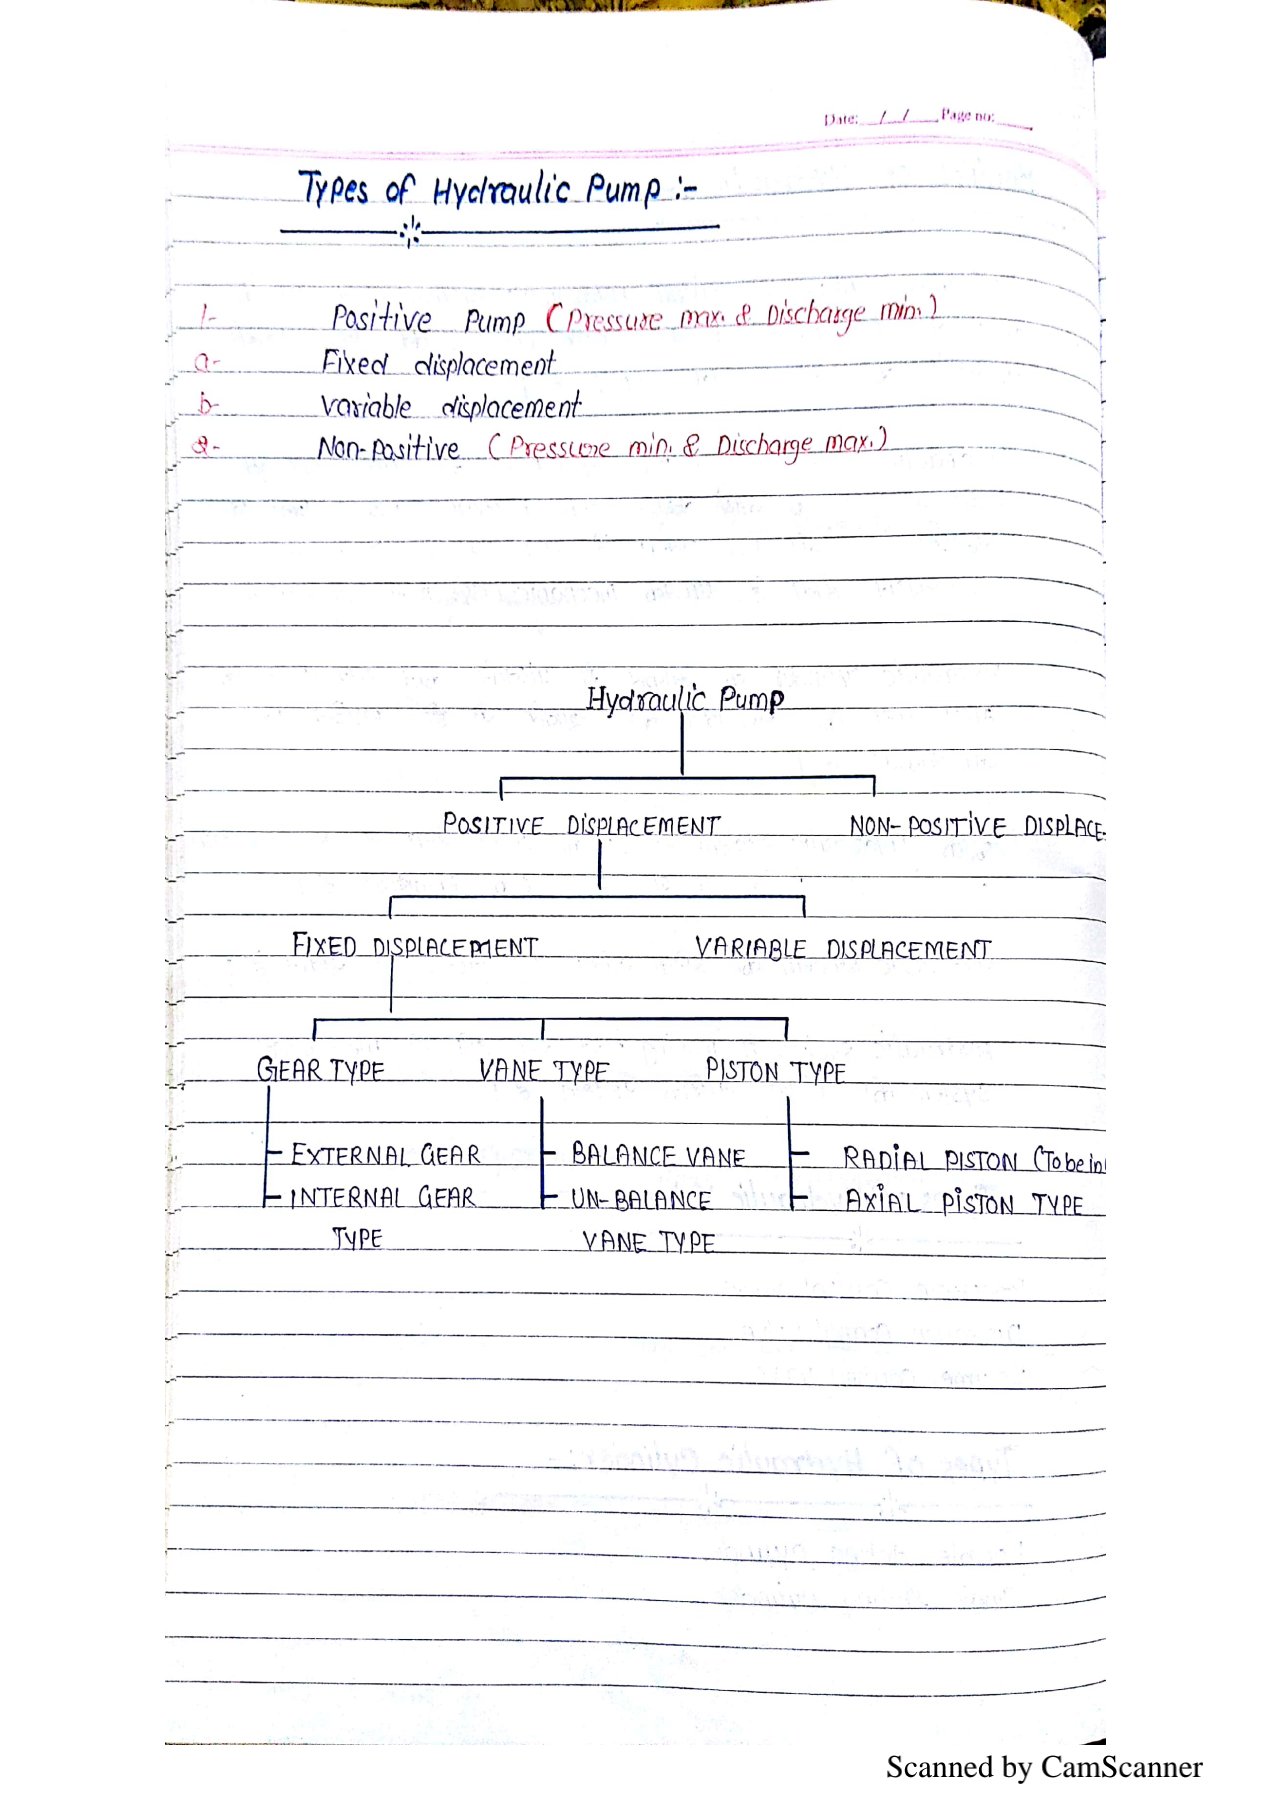 Date: / / Page no:
Types of Hydraulic Pump :-
1- Positive Pump (Pressure max. & Discharge min.)
a- Fixed displacement
b- Variable displacement
2- Non-Positive (Pressure min. & Discharge max.)
Hydraulic Pump
POSITIVE DISPLACEMENT NON-POSITIVE DISPLACE
FIXED DISPLACEMENT VARIABLE DISPLACEMENT
GEAR TYPE VANE TYPE PISTON TYPE
EXTERNAL GEAR BALANCE VANE RADIAL PISTON (To be in
INTERNAL GEAR UN-BALANCE AXIAL PISTON TYPE
TYPE VANE TYPE
Scanned by CamScanner